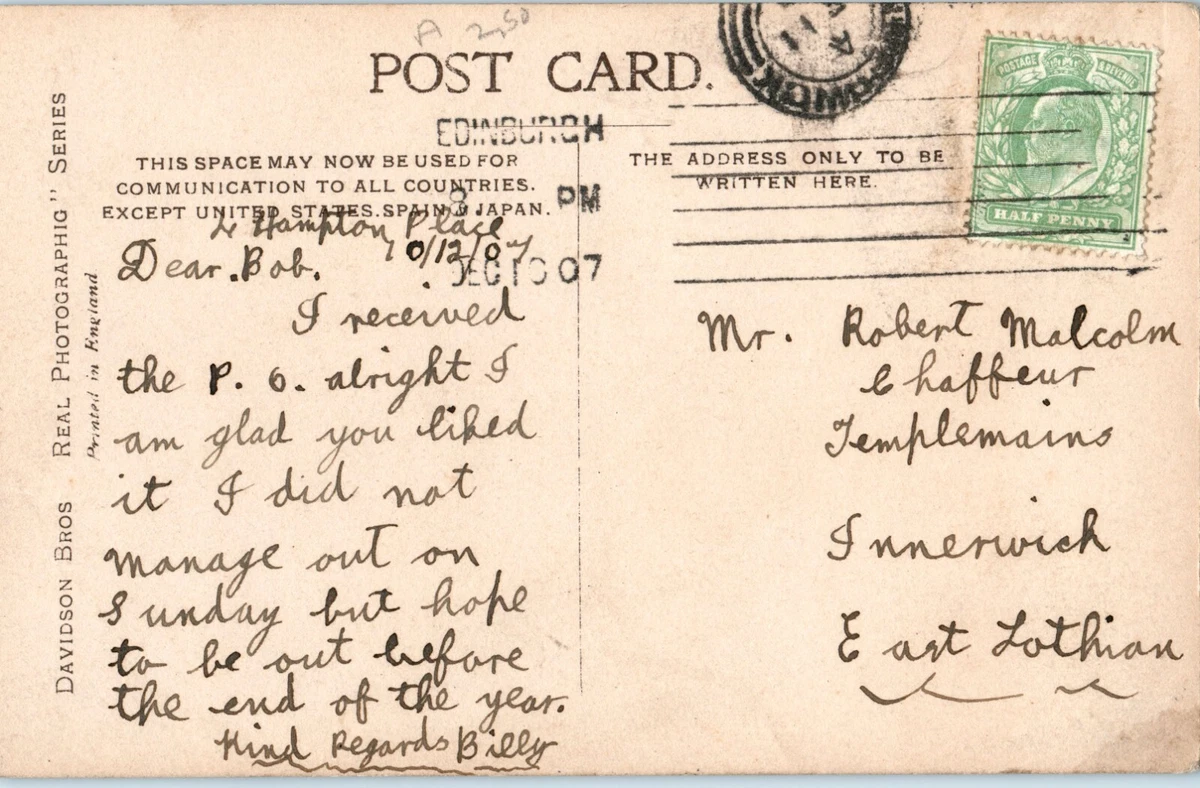 A 2,50
POST CARD.
EDINBURGH
8 PM
DEC 10 07
THIS SPACE MAY NOW BE USED FOR
COMMUNICATION TO ALL COUNTRIES.
EXCEPT UNITED STATES. SPAIN & JAPAN.
THE ADDRESS ONLY TO BE
WRITTEN HERE.
POSTAGE & REVENUE
HALF PENNY
DAVIDSON BROS REAL PHOTOGRAPHIG" SERIES
Printed in England
Hampton Place
10/12/07
Dear. Bob.
I received
the P. O. alright I
am glad you liked
it I did not
manage out on
Sunday but hope
to be out before
the end of the year.
Kind Regards Billy
Mr. Robert Malcolm
Chaffeur
Templemains
Innerwick
East Lothian